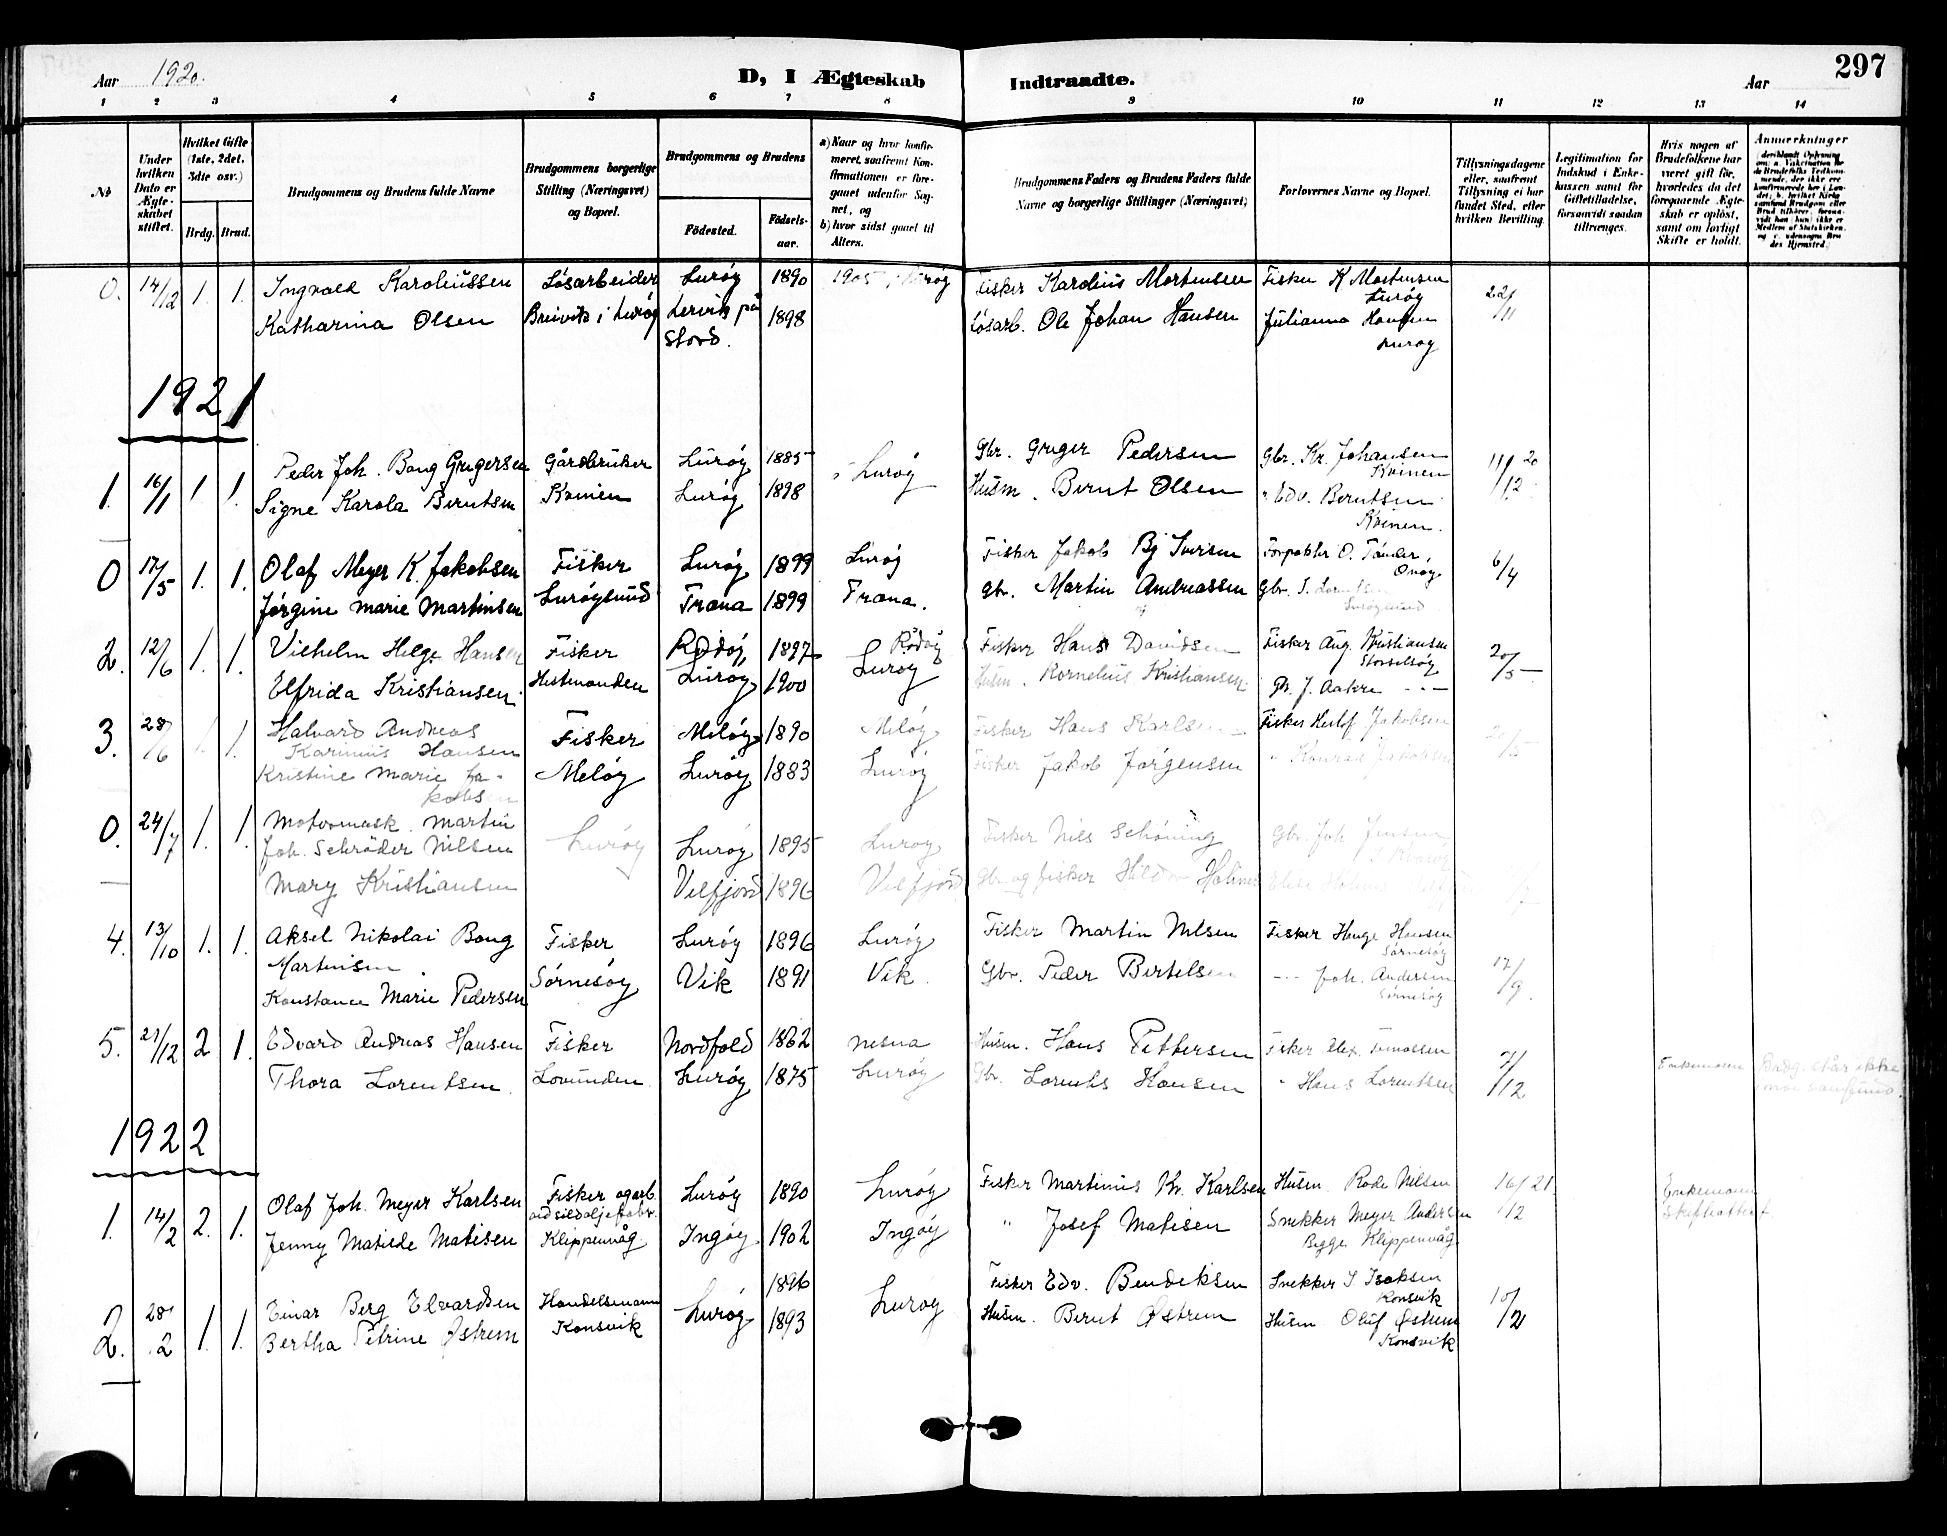 Aar 1920. D, I Ægteskab Indtraadte. Aar 297
1 2 3 4 5 6 7 8 9 10 11 12 13 14
No
Under hvilken Dato er Ægteskabet stiftet.
Hvilket Gifte (1ste, 2det, 3die osv.)
Brdg. Brud.
Brudgommens og Brudens fulde Navne
Brudgommens borgerlige Stilling (Næringsvei) og Bopæl.
Brudgommens og Brudens
Fødested. Fødselsaar.
a) Naar og hvor konfirmeret, saafremt Konfirmationen er foregaaet udenfor Sognet, og
b) hvor sidst gaaet til Alters.
Brudgommens Faders og Brudens Faders fulde Navne og borgerlige Stillinger (Næringsvei)
Forlovernes Navne og Bopæl.
Tillysningsdagene eller, saafremt Tillysning ei har fundet Sted, efter hvilken Bevilling.
Legitimation for Indskud i Enkekassen samt for Giftetilladelse, forsaavidt saadan tiltrænges.
Hvis nogen af Brudefolkene har været gift før, hvorledes da det foregaaende Ægteskab er opløst, samt om lovligt Skifte er holdt.
Anmærkninger
0. 14/12 1. 1. Ingvald Karoliussen Løsarbeider Lurøy 1890 1905 i Lurøy Fisker Karolius Mortensen Fisker K Mortensen Lurøy 22/11
Katharina Olsen Breivik i Lurøy Lervik på Stord. 1898 Løsarb. Ole Johan Hansen Julianna Hansen Lurøy
1921
1. 16/1 1 1. Peder Joh. Bang Gregersen Gårdbruker Lurøy 1885 Lurøy Gbr. Greger Pedersen Gbr. Kr. Johansen Kvinen 11/12 20
Signe Karola Berntsen Kvinen Lurøy 1898 Husm. Bernt Olsen " Edv. Berntsen Kvinen.
0 17/5 1. 1. Olaf Meyer K. Jakobsen Fisker Lurøy 1899 Lurøy Fisker Jakob Bj Iversen Forpakter O. Tønder, Onøy 6/4
Jørgine Marie Martinsen Lurøysund Træna 1899 Træna. Gbr. Martin Andreassen Gbr. Lorntsen Lurøysund
2. 12/6 1. 1. Vilhelm Helge Hansen Fisker Rødøy 1897 Rødøy Fisker Hans Davidsen Fisker Aug. Kristiansen Storselsøy 20/5
Elfrida Kristiansen. Hestmanden Lurøy 1900 Lurøy Husm. Kornelius Kristiansen. J. Aakre - - -
3. 28/6 1. 1. Halvard Andreas Fisker Meløy 1890 Meløy Fisker Hans Karlsen Fisker Herlof Jakobsen 20/5
Karinius Hansen
Kristine Marie Jakobsen Meløy Lurøy 1883 Lurøy Fisker Jakob Jørgensen " Konrad Jakobsen
0. 24/7 1. 1. Motormask. Martin
Joh. Schrøder Nilsen Lurøy Lurøy 1895 Lurøy Fisker Nils Schøning Gbr. Joh Jensen
Mary Kristiansen Velfjord 1896 Velfjord Gbr og fisker
4. 13/10 1. 1. Aksel Nikolai Bang Fisker Lurøy 1896 Lurøy Fisker Martin Nilsen Fisker Hauge Hansen Sørnesøy 17/9.
Martinsen.
Konstance Marie Pedersen Sørnesøy Vik 1891 Vik. Gbr. Peder Bertelsen - - - Joh. Andersen Sørnesøy
5. 27/12 2 1. Edvard Andreas Hansen Fisker Nordfold 1862 Nesna Husm. Hans Pettersen Fisker Alex. Tomassen 7/12 Enkemann Brdg. står ikke
Thora Lorentsen. Lovunden. Lurøy 1875 Lurøy Gbr. Lorents Hansen " Hans Lorentsen
1922
1. 14/2 2. 1. Olaf Joh. Meyer Karlsen Fisker og arb. ved sildoljefabr. Lurøy 1890 Lurøy Fisker Martinus Kr. Karlsen Husm Rode Nilsen 16/12 21. Enkemann
Jenny Matilde Matisen Klippenvåg Ingøy 1902 Ingøy " Josef Matisen Snekker Meyer Andersen Begge Klippenvåg Skifteattest
2. 28/2 1. 1. Einar Berg Edvardsen Handelsmann Lurøy 1896 Lurøy Fisker Edv. Bendiksen Snekker I Isaksen Konsvik 10/2
Bertha Petrine Østrem Konsvik 1893 Husm. Bernt Østrem Husm Oluf Østrem Konsvik